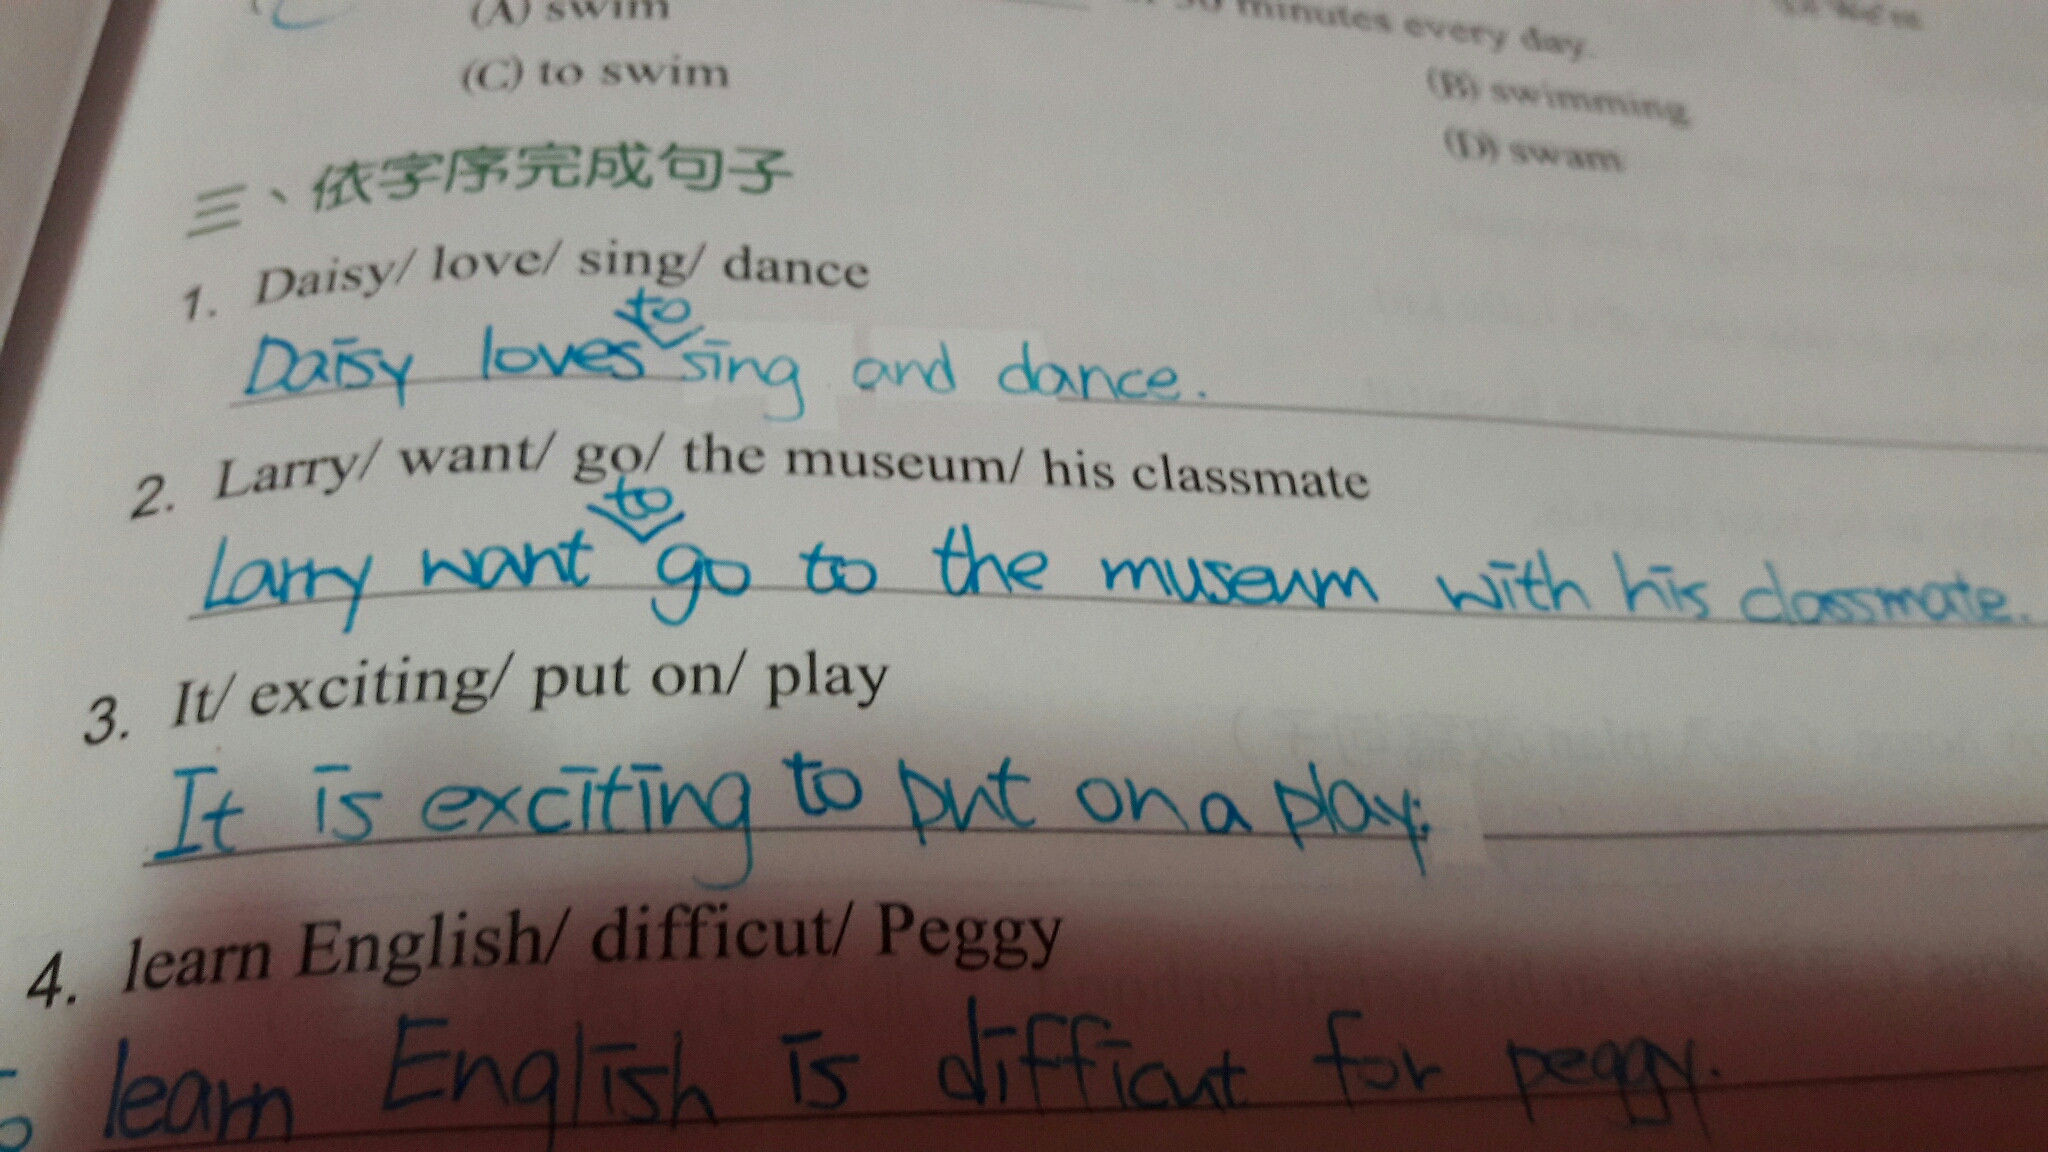 (A) swim
30 minutes every day.
(C) to swim
(B) swimming
(D) swam
三、依字序完成句子
1. Daisy/ love/ sing/ dance
to
Daisy loves sing and dance.
2. Larry/ want/ go/ the museum/ his classmate
to
Larry want go to the museum with his classmate.
3. It/ exciting/ put on/ play
It is exciting to put on a play.
4. learn English/ difficut/ Peggy
learn English is difficut for peggy.